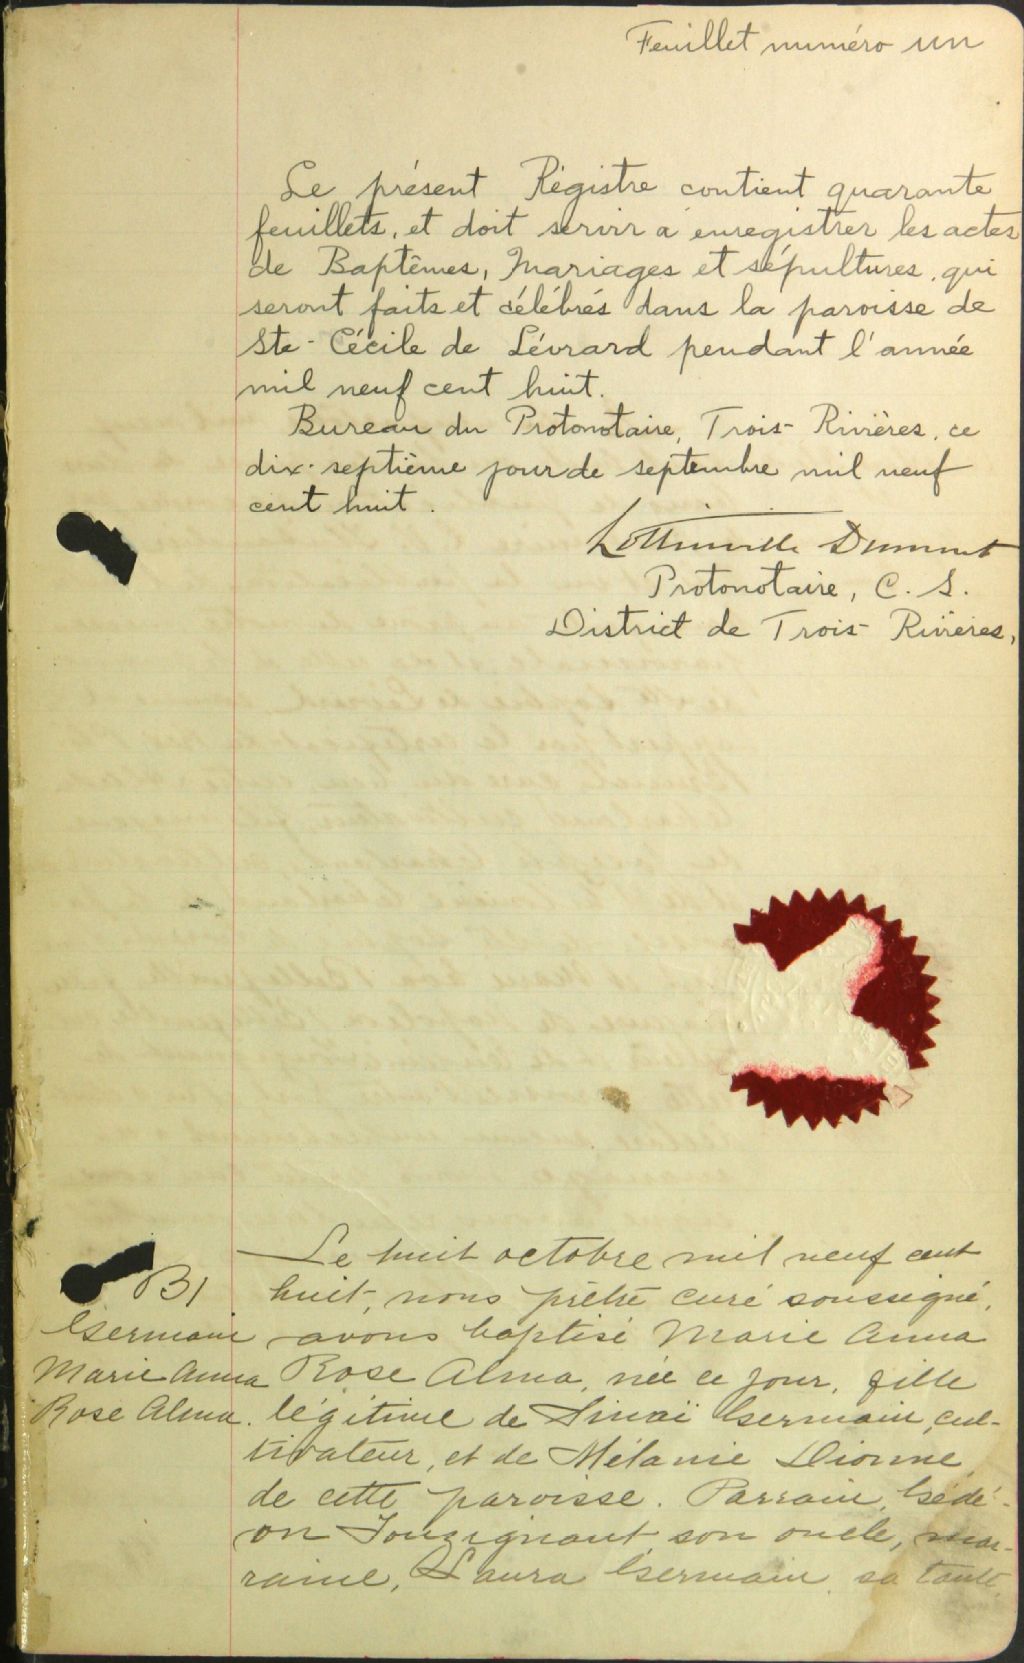 Feuillet numéro un
Le présent Régistre contient quarante
feuillets, et doit servir à enregistrer les actes
de Baptêmes, Mariages et sépultures, qui
seront faits et célébrés dans la paroisse de
Ste-Cécile de Lévrard pendant l'année
mil neuf cent huit.
Bureau du Protonotaire, Trois-Rivières, ce
dix-septième jour de septembre mil neuf
cent huit.
Protonotaire, C. S.
District de Trois-Rivières,
B1
Germain
Marie Anna
Rose Alma.
Le huit octobre mil neuf cent
huit, nous prêtre curé soussigné,
avons baptisé Marie Anna
Rose Alma, née ce jour, fille
légitime de Sinaï Germain, cul-
tivateur, et de Mélanie Dionne
de cette paroisse. Parrain, Gédé-
on Tousignant son oncle, mar-
raine, Laura Germain sa tante,